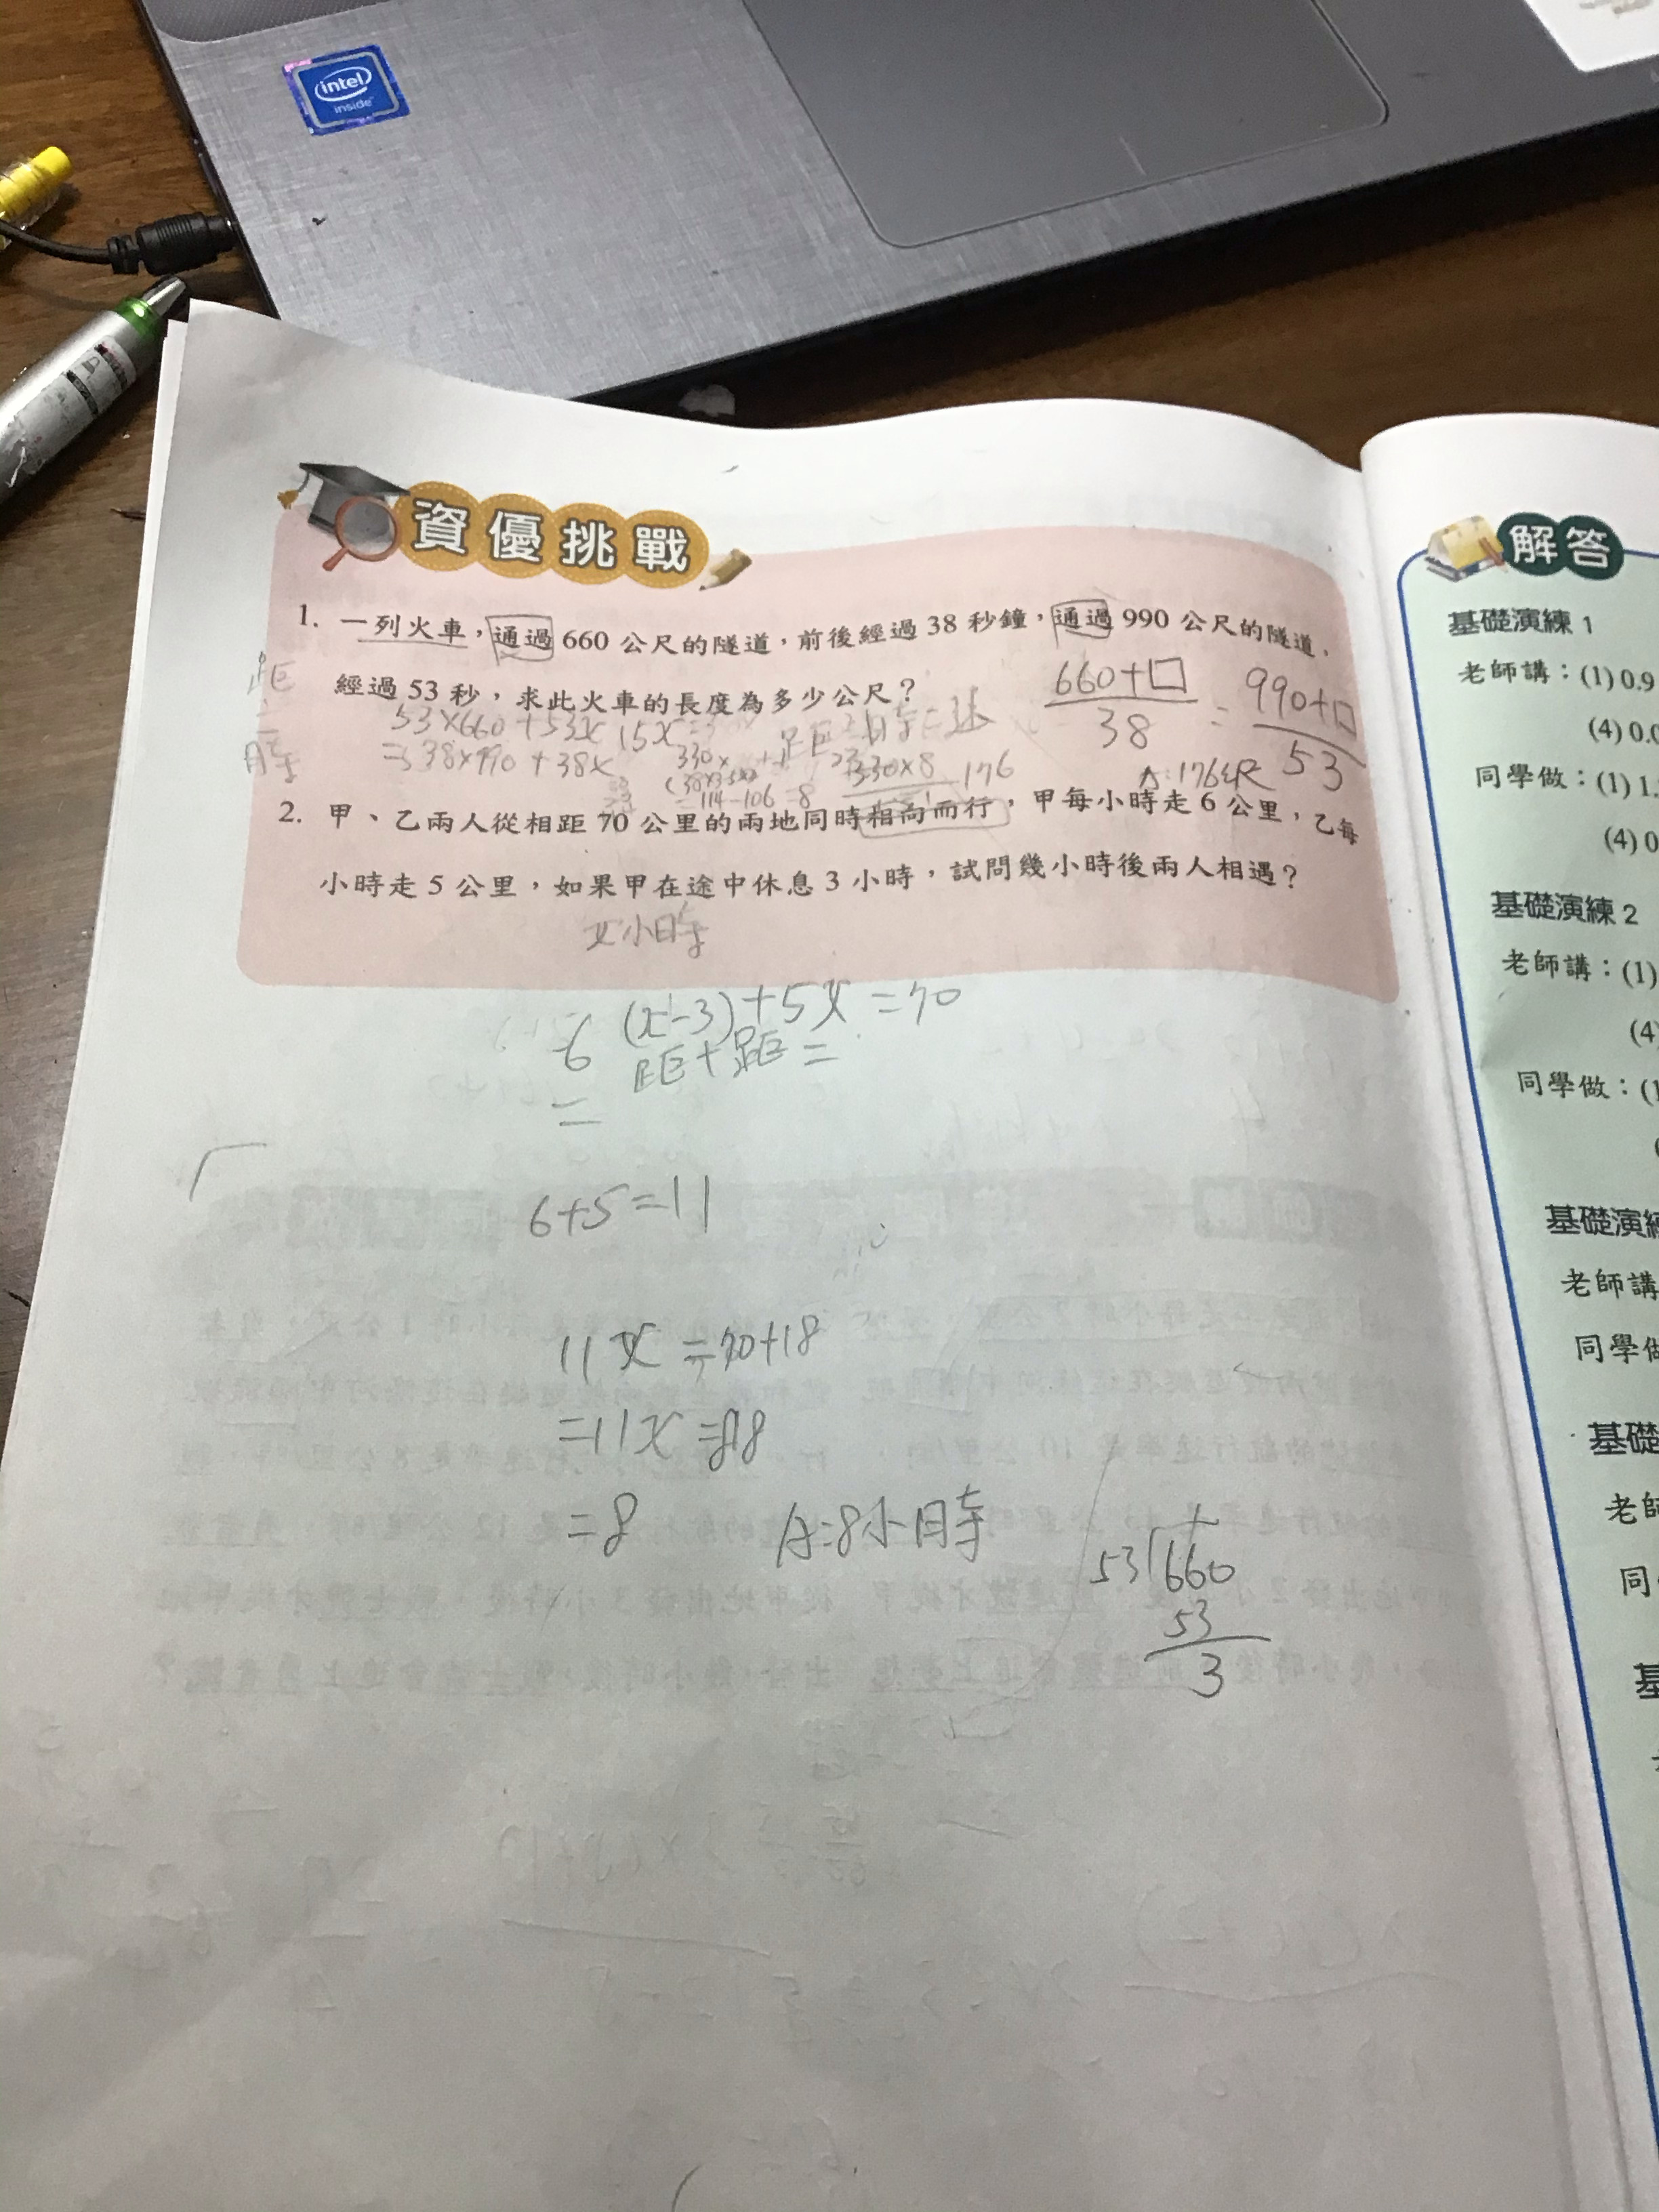 intel
inside
資優挑戰
1. 一列火車，通過 660 公尺的隧道，前後經過 38 秒鐘，通過 990 公尺的隧道，
經過 53 秒，求此火車的長度為多少公尺？
距
÷
時
660+□
38
=
990+□
53
53×660+53x
=38×990+38x
距÷時=速
330×8
176
=114-106=8
A:176公尺
2. 甲、乙兩人從相距 70 公里的兩地同時相向而行，甲每小時走 6 公里，乙每
小時走 5 公里，如果甲在途中休息 3 小時，試問幾小時後兩人相遇？
x小時
6(x-3)+5x=70
距+距=
=
6+5=11
11x=70+18
=11x=88
=8
A:8小時
53
660
53
3
解答
基礎演練 1
老師講：(1) 0.9
(4) 0.0
同學做：(1) 1.
(4) 0
基礎演練 2
老師講：(1)
(4)
同學做：(1
基礎演練
老師講
同學做
基礎
老師
同
基